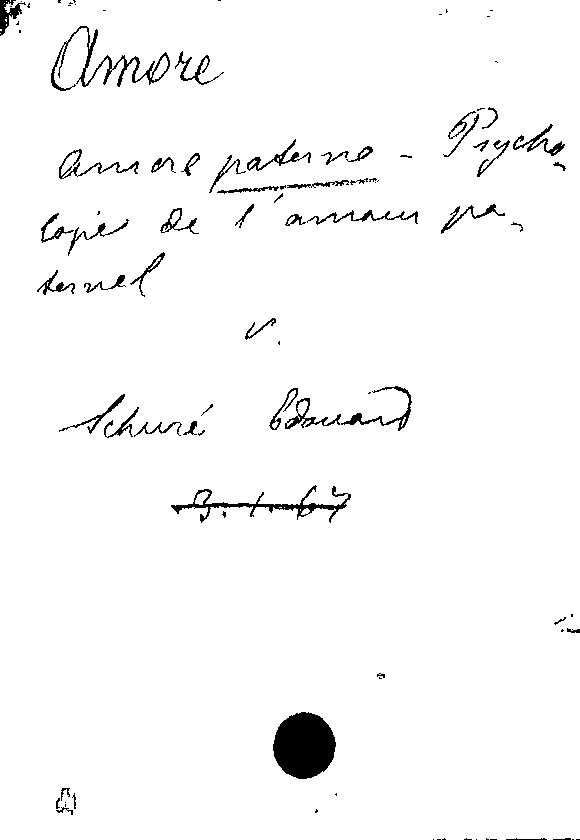 Amore
Amore paterno - Psycho-
logie de l'amour pa-
ternel
v.
Schuré Edouard
3.1.67